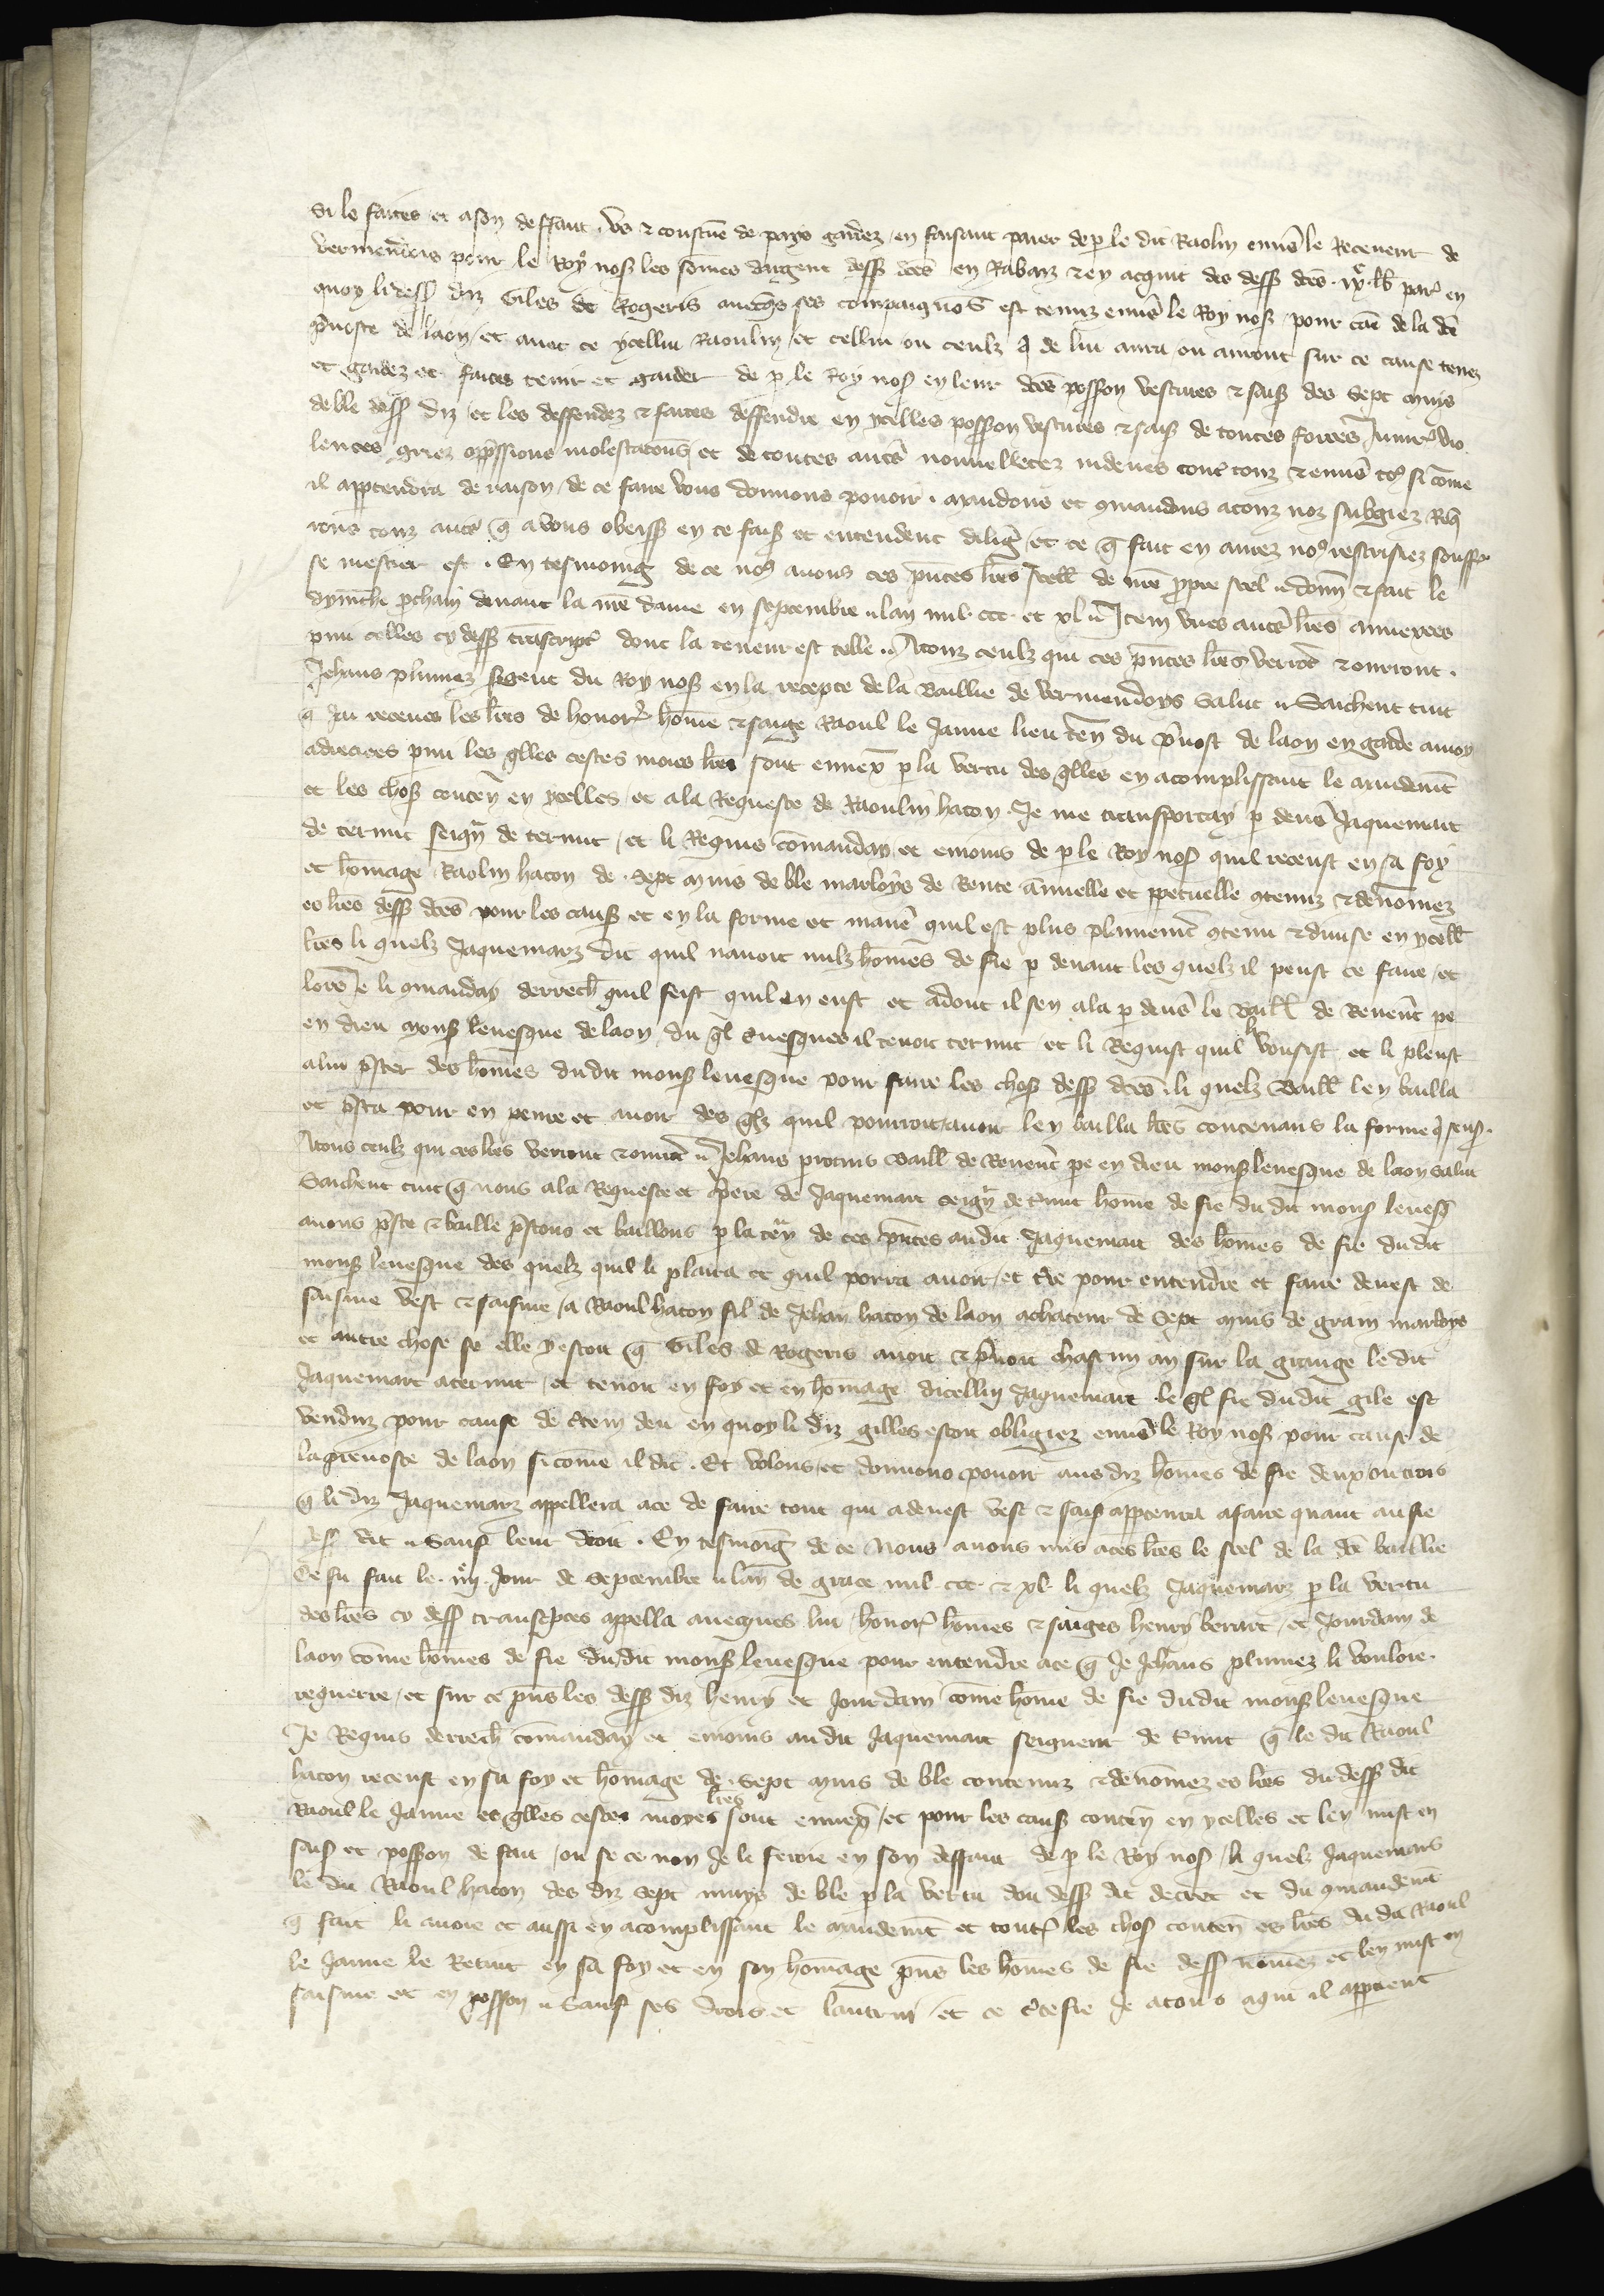 Si le faites et a son deffaut us & coustume de pays gardez en faisant paier de p le dit Raolin enus le Receveur de
vermendois pour le Roy nos les somes dargent dess dces en Rabaz & en acquit des dess dces . lb par en
quoy li dess diz Giles de Rogeris avecqs ses compaignos est tenuz envs le Roy nos pour cau de la dce
pvoste de laon / et avec ce ycellui Raoulin et cellui ou ceulz q de lui aura ou auront sur ce cause tenez
et gardez et faites tenir et garder de p le Roy nos en leur dces possion vestures & sais des Sept muis
de ble dess diz / et les deffendez & faites deffendre en ycelles possion vestures & sais de toutes forces Iniur vio
lences griez oppssions molestacions et de toutes autres nouvelletez indeues contre touz & envs toz si come
il apptendra de raison / de ce faire vous donnons pouoir . mandons et 9mandons a touz noz subgiez Req
rons touz autres q a vous obeiss en ce fais et entendent dilig / et ce q fait en aurez nos rescrisiez souffis
se mestier est . En tesmoing de ce nos avons ces pntes lres scell de nre ppre seel . donn & fait le
dymche pchain devant la nre dame en septembre . lan mil ccc et xl . Item unes autres lres annexees
pmi celles cy dess transcript dont la teneur est telle . A touz ceulz qui ces pntes lres verront & orront .
Jehans plumez sgent du Roy nos en la recepte de la Baillie de vermendoys Salut . Saichent tuit
q jai receues les lres de honor home & saige Raoul le Jaune lieuten du pvost de laon en garde a moy
adrecees pmi les qlles cestes moies lres sont ennex p la vertu des qlles en acomplissant le mandemt
et les choses conten en ycelles / et a la Requeste de Raoulin hacon . Je me transportay p devs Jaquemart
de ternut seign de ternut / et li Requis comanday et enioins de p le Roy nos quil receust en sa foy
et homage Raolin hacon de Sept muis de ble marloys de Rente annuelle et ppetuelle 9tenuz & denomez
es lres dess dces pour les caus et en la forme et manie quil est plus plainemt 9tenu & divise en ycell
lres li quelz Jaquemarz dit quil navoit nulz homes de fie p devant les quelz il peust ce faire / et
lors Je li 9manday derrech quil feist quil en eust et adont il sen ala p devs le Baill de Revent pe
en dieu mons levesque de laon du ql evesques il tenoit ternut et li Requist quil li vousist et li pleust
a lui pster des homes dudit mons levesque pour faire les chos dess dces . li quelz Baill len bailla
et psta pour en penre et avoir des qlz quil pourroit avoir len bailla lres contenans la forme q sens .
A tous ceulz qui ces lres verront & orront . Jehans Baill de Revent pe en dieu mons levesque de laon salut
Saichent tuit q nous a la Requeste et piere de Jaquemart seign de tinut home de fie du dit mons levesq
avons pste & baille pstons et baillons p la ten de ces pntes audit Jaquemart des homes de fie dudit
mons levesque des quelz quil li plaira et quil porra avoir / et tre pour entendre et faire devest de
saisine vest & saisine / a Raoul hacon fil de Jehan hacon de laon achateur de Sept muis de grain marloys
et autre chose se elle y estoit q Giles de Rogeris avoit & pnoit chascun an sur la grange ledit
Jaquemart a ternut / et tenoit en foy et en homage dicellui Jaquemart le ql fie dudit gile est
venduz pour cause de dtein deu en quoy li diz gilles estoit obligiez envs le Roy nos pour cause de
la prevoste de laon si come il dit . Et volons et donnons pouoir aus diz homes de fie deux ou trois
q li diz Jaquemarz appellera a ce de faire tout qui a devest vest & sais apptenra a faire quant au fie
dess dit . Sauf leur droit . En tesmoing de ce Nous avons mis a ces lres le seel de la dce baillie
Ce fu fait le . iiij . Jour de Septembre . lan de grace mil ccc & xl . li quelz Jaquemarz p la vertu
des lres cy dess transcptes appella avecques lui / honor homes & saiges henry berart / et Jourdam de
laon come homes de fie dudit mons levesque pour entendre a ce q Je Jehans plumez li vouloie
requerre / et sur ce pns les dess diz henry et Jourdam come home de fie dudit mons levesque
Je Requis derrech comanday et enioins audit Jaquemart seigneur de tinut q le dit Raoul
hacon receust en sa foy et homage de Sept muis de ble contenuz & denomez es lres dudess dit
Raoul le Jaune es qlles cestes moyes lres sont ennex / et pour les caus conten en ycelles et len mist en
sais et possion de fait / ou se ce non Je le feroie en son deffaut de p le Roy nos / li quelz Jaquemars
le dit Raoul hacon des diz sept muys de ble p la vertu dou dess dit decret et du 9mandemt
q fait li avoie et aussi en acomplissant le mandemt et toutes les chos conten es lres du dit Raoul
le Jaune le Retint en sa foy et en son homage pns les homes de fie dess nomez et len mist en
saisine et en possion . Sauf ses drois et lautrui / et ce ctefie Je a tous a qui il appient